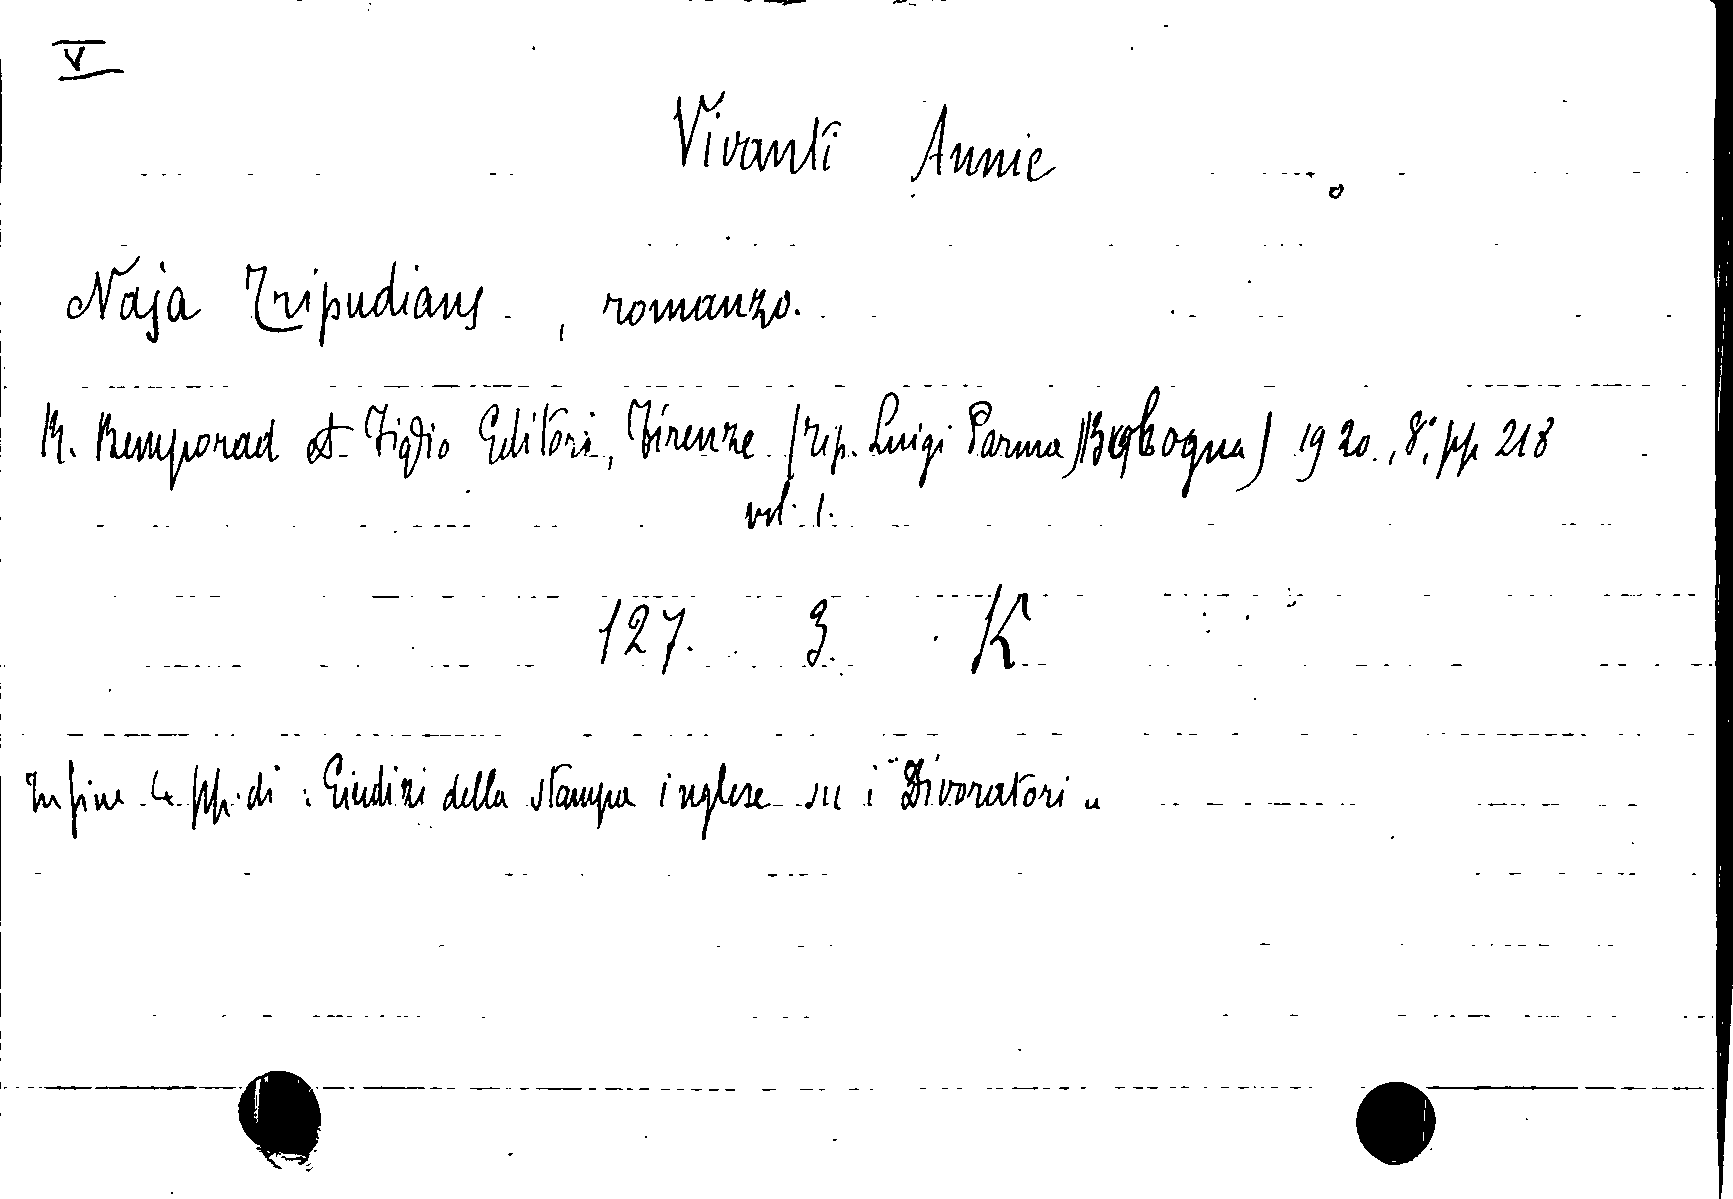 V
Vivanti Annie
Naja Tripudians, romanzo.
R. Bemporad & Figlio Editori, Firenze (Tip. Luigi Parma, Bologna) 1920., 8°, pp. 218
vol. 1.
127. 3. K
In fine 4 pp. di : Giudizi della stampa inglese su i "Divoratori"